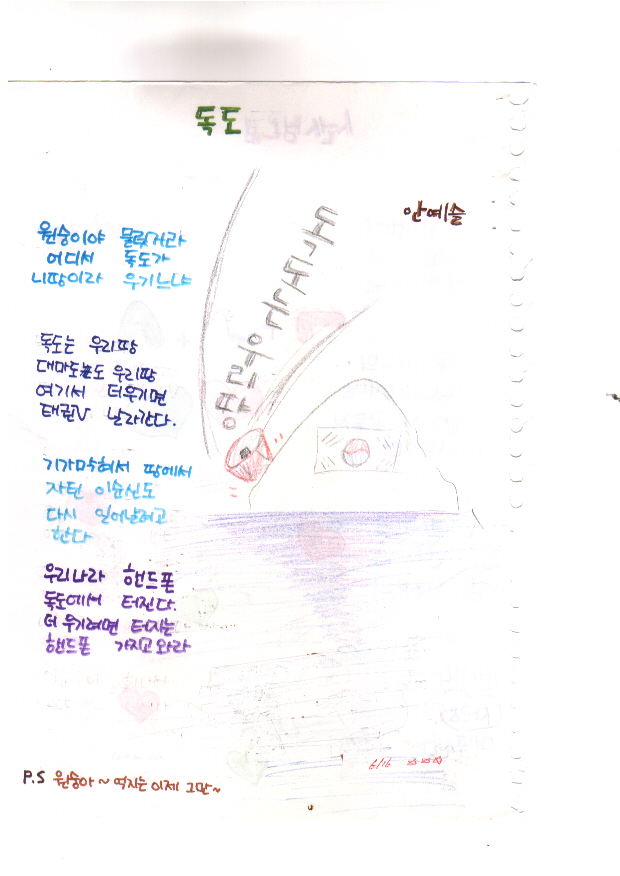 독도
안예슬
독도는 우리땅
원숭이야 물렀거라
어디서 독도가
니땅이라 우기느냐
독도는 우리땅
대마도도 우리땅
여기서 더우기면
태권V 날라간다.
기가막혀서 땅에서
자던 이순신도
다시 일어날려고
한다
우리나라 핸드폰
독도에서 터진다.
더 우기려면 터지는
핸드폰 가지고와라
6/16 ☆☆☆
P.S 원숭아~ 억지는 이제 그만~